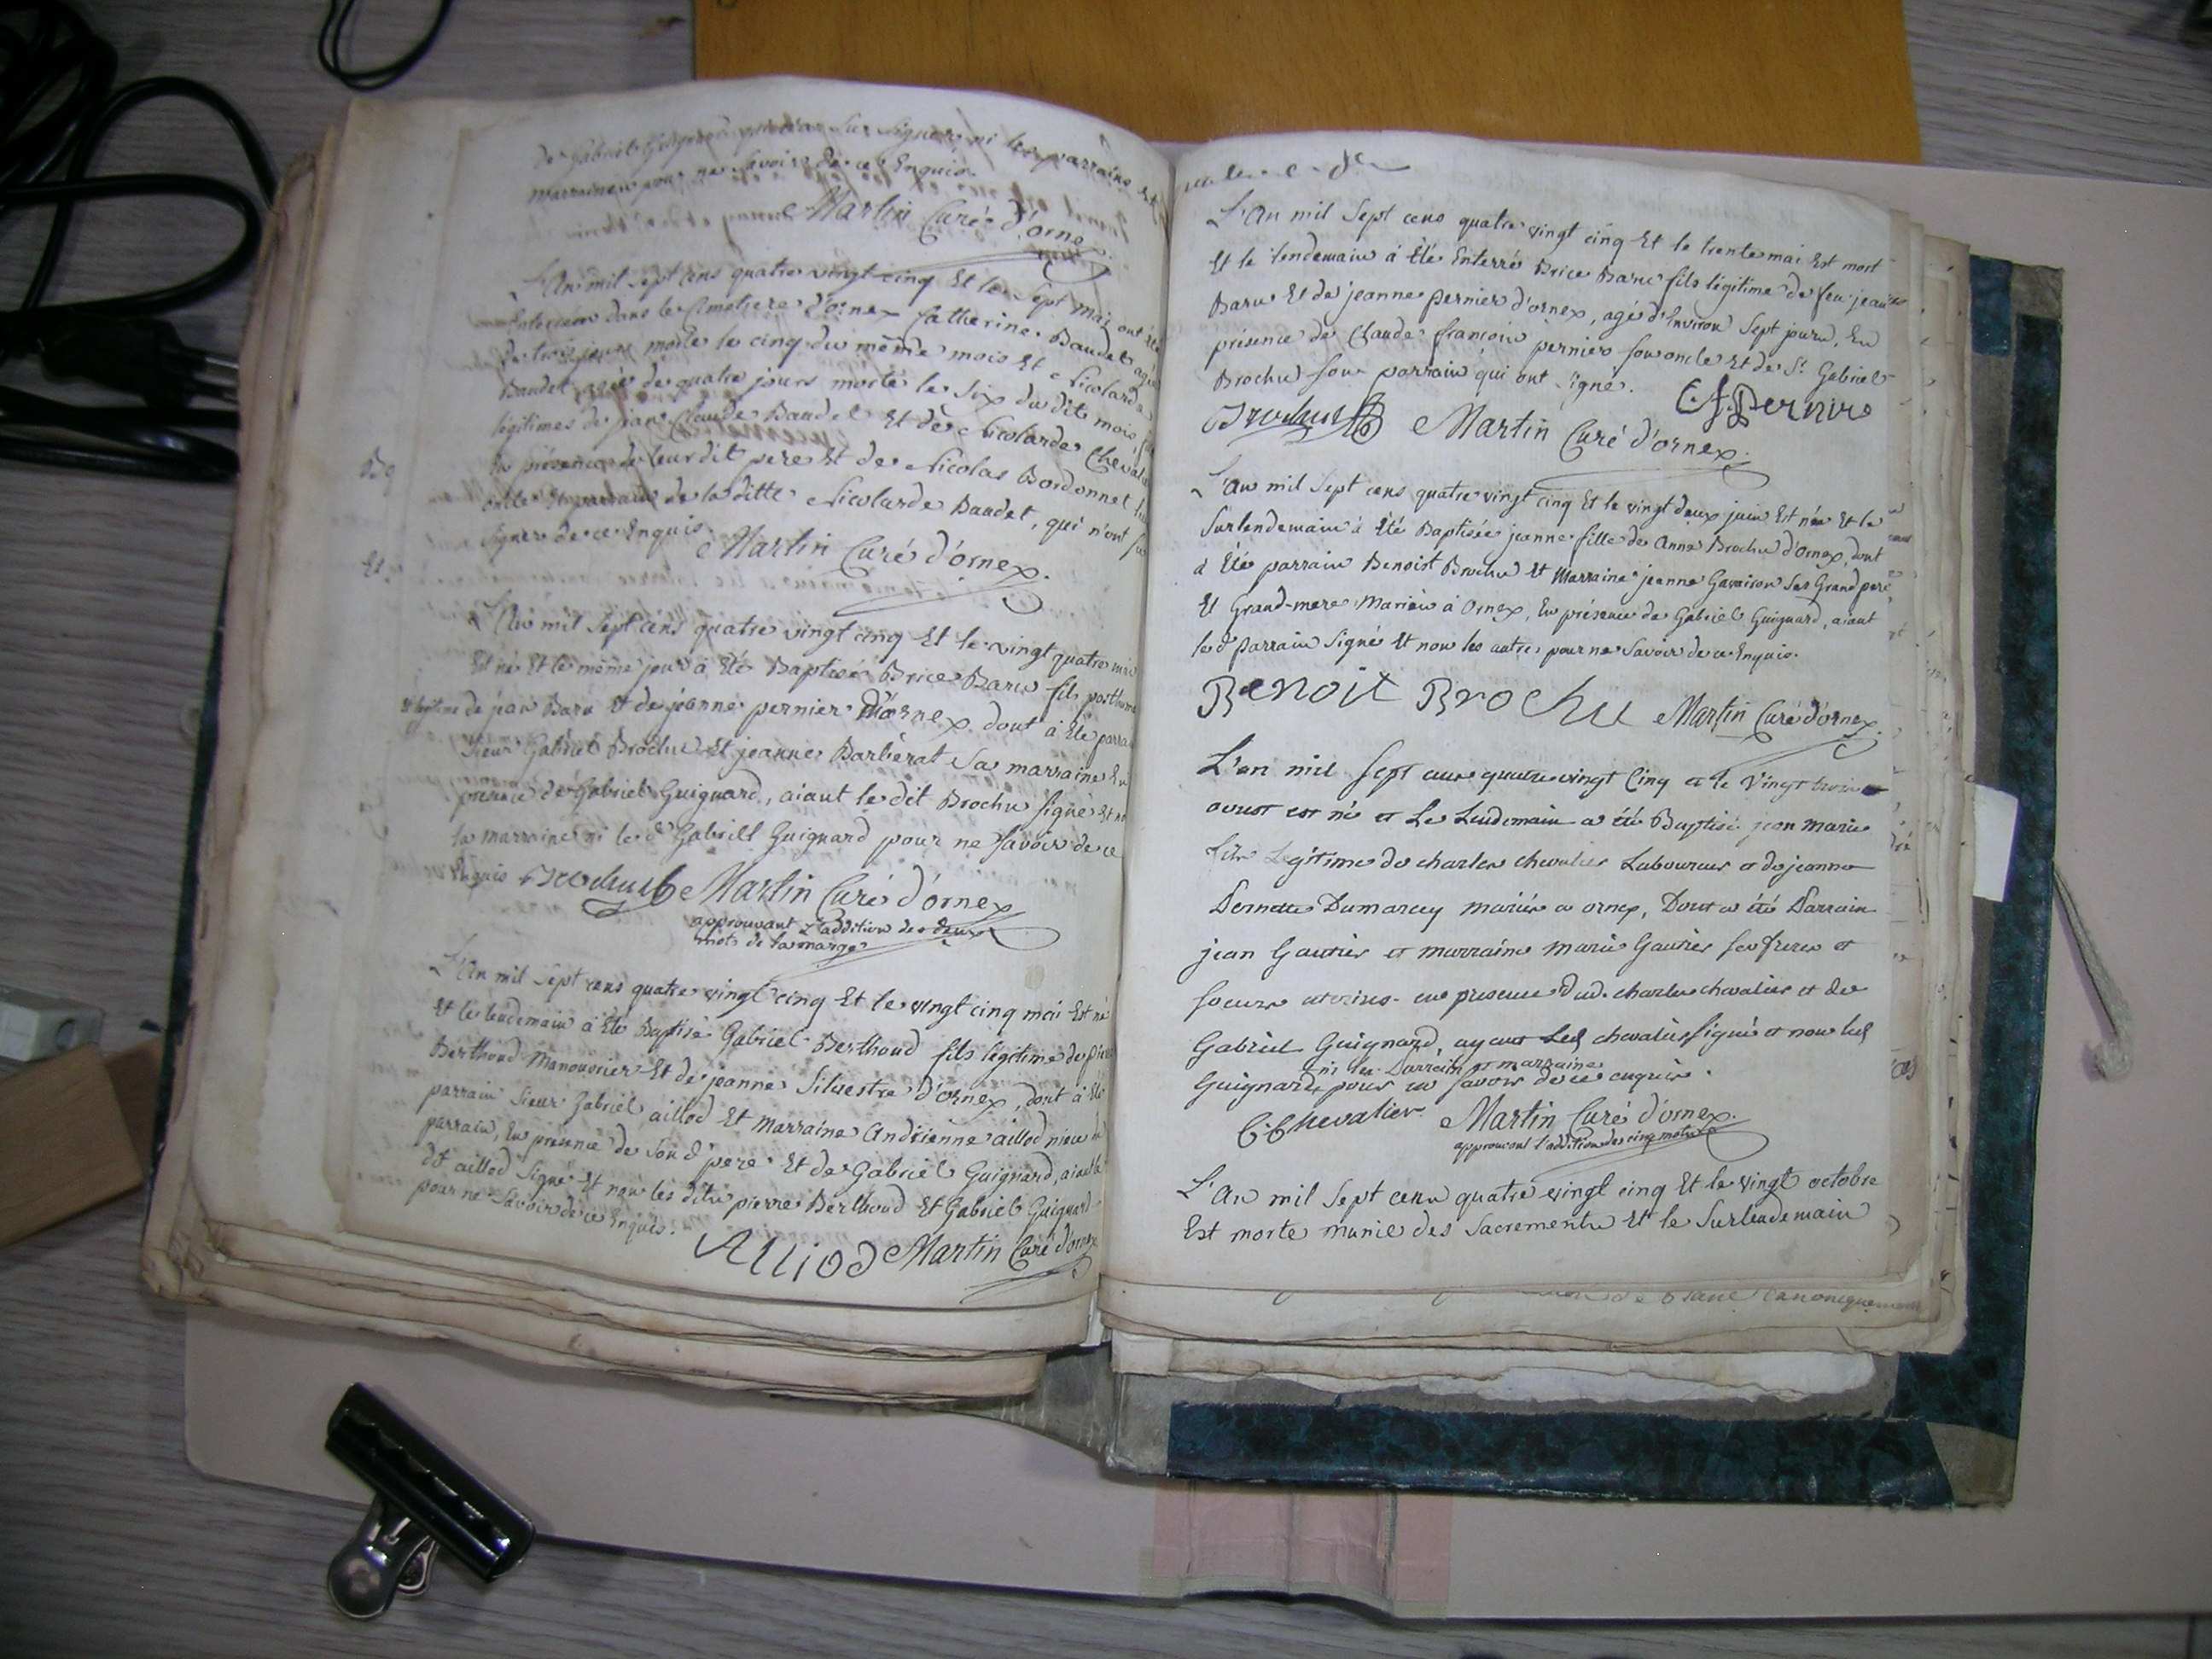 de Gabriel Guignard su signer, ni les parrains et
marraines pour ne savoir de ce Enquis.
Martin Curé d'ornex
L'An mil sept cens quatre vingt cinq Et le sept mai ont été
dans le Cimetiere d'ornex Catherine Baudet agée
de trois jours morte le cinq du même mois et Nicolarde
Baudet agée de quatre jours morte le six du dit mois,
légitimes de jean Claude Baudet Et de Nicolarde Chevalier
En présence de leur dit pere Et de Nicolas Bordonnet
oncle Et parrain de la ditte Nicolarde Baudet, qui n'ont su
signer de ce Enquis. Martin Curé d'ornex.
L'An mil sept cens quatre vingt cinq Et le vingt quatre mai
Est né Et le même jour à été Baptisé Brice Baru fils posthume
Et légitime de jean Baru Et de jeanne pernier d'ornex dont à été parrain
sieur Gabriel Brochu Et jeanne Barbérat sa marraine En
présence de Gabriel Guignard, aiant le dit Brochu signé Et non
la marraine ni le d Gabriel Guignard pour ne savoir de ce
Enquis Brochu Martin Curé d'ornex
approuvant l'addition des deux
mots de la marge
L'An mil sept cens quatre vingt cinq Et le vingt cinq mai Est né
Et le lendemain à été Baptisé Gabriel Berthoud fils légitime de pierre
Berthoud Manouvrier Et de jeanne Silvestre d'ornex, dont à été
parrain sieur Gabriel aillod Et Marraine Andrienne aillod niece du
parrain, En présence de son d pere Et de Gabriel Guignard, aiant le
dt aillod signé Et non les dits pierre Berthoud Et Gabriel Guignard
pour ne savoir de ce Enquis.
Alliod Martin Curé d'ornex
L'An mil sept cens quatre vingt cinq Et le trente mai Est mort
Et le lendemain à été Enterré Brice Baru fils légitime de feu jean
Baru Et de jeanne pernier d'ornex, agé d'Environ sept jours, En
présence de Claude françois pernier son oncle Et de Sr Gabriel
Brochu son parrain qui ont signé. C f Pernier
Brochu Martin Curé d'ornex.
L'An mil sept cens quatre vingt cinq Et le vingt deux juin Est née Et le
surlendemain à été Baptisée jeanne fille de Anne Brochu d'ornex, dont
à été parrain Benoist Brochu Et Marraine jeanne Gavairon ses Grand pere
Et Grand-mere Mariés à Ornex, En présence de Gabriel Guignard, aiant
le d parrain signé Et non les autres pour ne savoir de ce Enquis.
Benoit Brochu Martin Curé d'ornex.
L'an mil sept cens quatre vingt Cinq et le Vingt trois
aoust est né et Le Lendemain a été Baptisé jean marie
fils Legitime de charles chevalier Laboureur et de jeanne
Pernette Dumarcey mariés a ornex, Dont a été Parrain
jean Gautier et marraine marie Gautier ses freres et
soeurs uterins en presence dud. charles chevalier et de
Gabriel Guignard, ayant Led chevalier signé et non led
ni les Parrain et marraine
Guignard, pour ne savoir de ce enquis.
C. Chevalier Martin Curé d'ornex.
approuvant l'addition des cinq mots
L'An mil sept cens quatre vingt cinq Et le vingt octobre
Est morte munie des Sacrements Et le Surlendemain